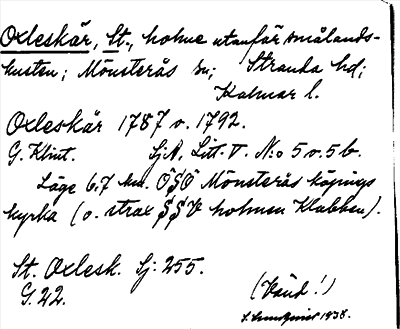 Oxleskär, St., holme utanför smålands-
kusten; Mönsterås sn; Stranda hd;
Kalmar l.
Oxleskär 1787 o. 1792.
G. Klint. Sj.A. Litt. V. N:o 5 o. 5 b.
Läge 6.7 km. ÖSÖ Mönsterås köpings
kyrka (o. strax SSV holmen Klubben).
St. Oxlesk. Sj: 255.
G. 22.
(Vänd!)
1938.